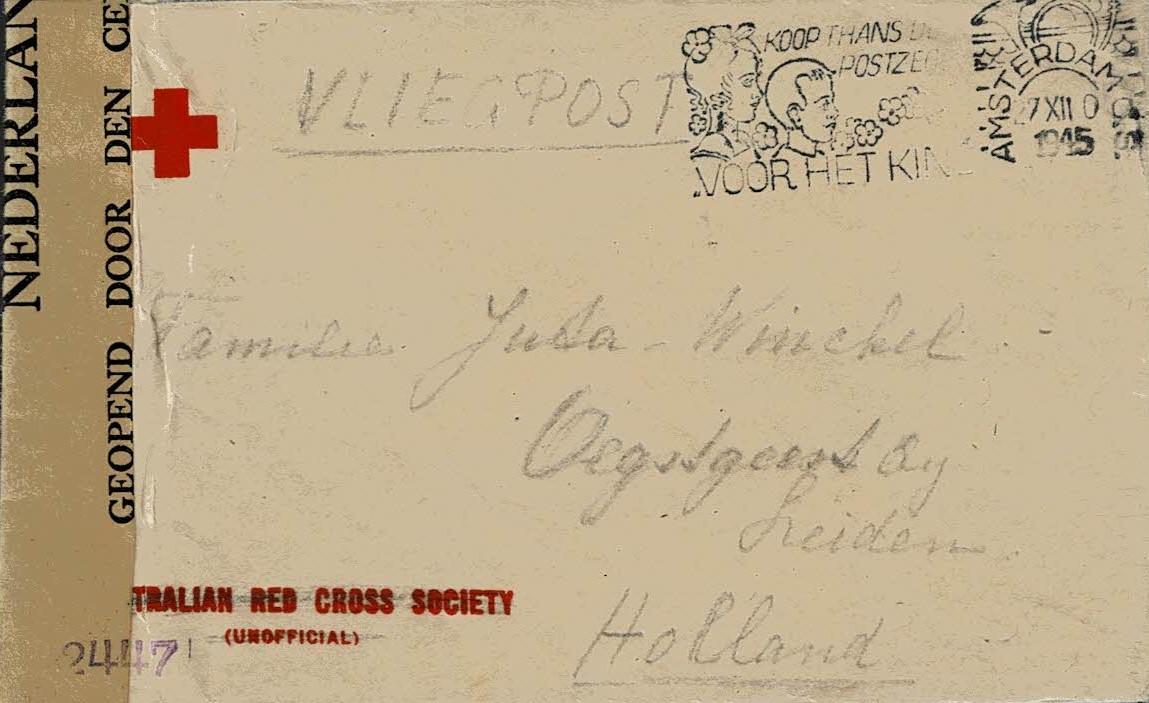 NEDERLAN
GEOPEND DOOR DEN CE
VLIEGPOST
KOOP THANS D
POSTZEG
"VOOR HET KIN
AMSTERDAM
7 XII
1945
Familie Juta - Winckel
Oegstgeest by
Leiden
Holland
TRALIAN RED CROSS SOCIETY
(UNOFFICIAL)